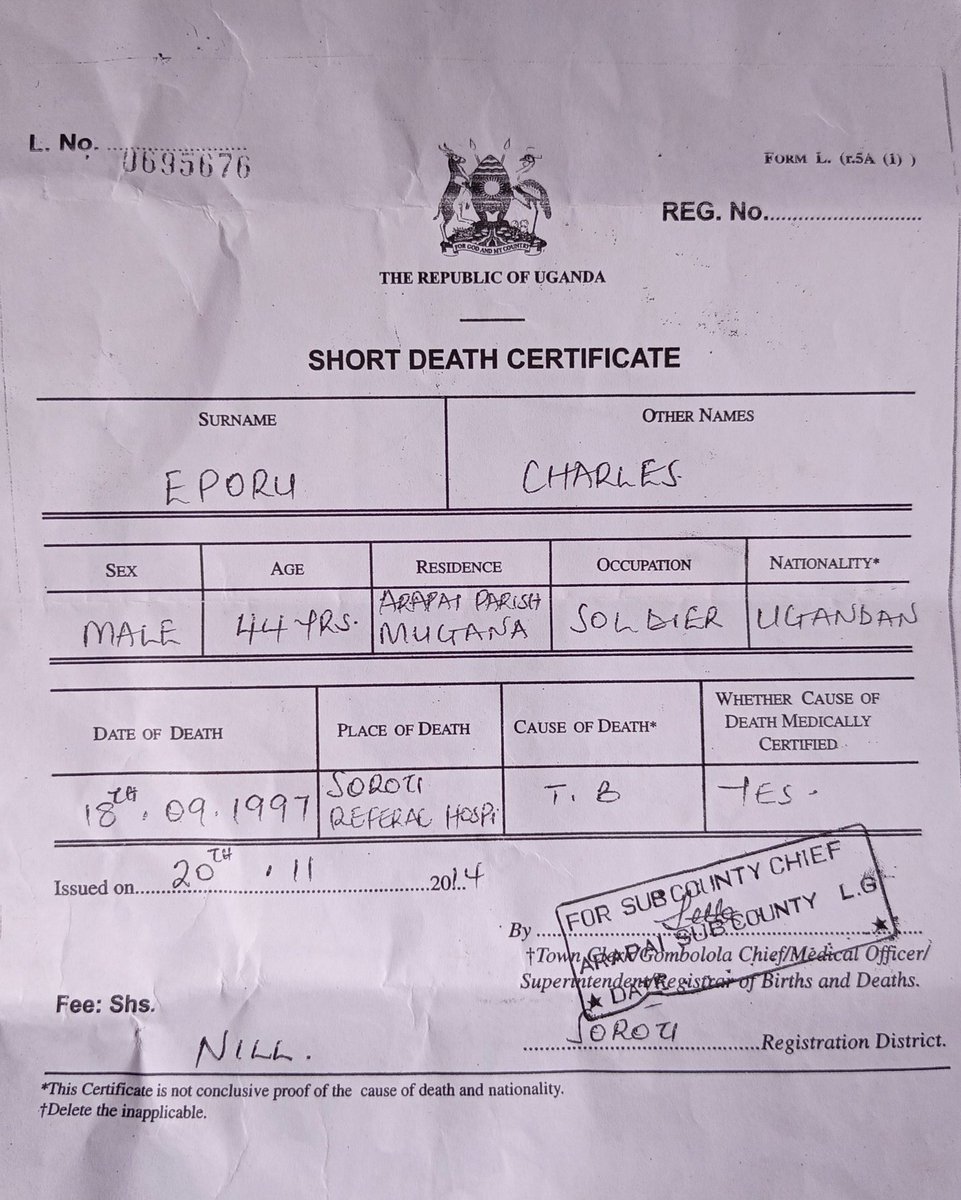 L. No. ....................
0695676
FORM L. (r.5A (1) )
REG. No............................
FOR GOD AND MY COUNTRY
THE REPUBLIC OF UGANDA
SHORT DEATH CERTIFICATE
SURNAME
OTHER NAMES
EPORU
CHARLES
SEX
AGE
RESIDENCE
OCCUPATION
NATIONALITY*
MALE
44 YRS.
ARAPAI PARISH
MUGANA
SOLDIER
UGANDAN
DATE OF DEATH
PLACE OF DEATH
CAUSE OF DEATH*
WHETHER CAUSE OF
DEATH MEDICALLY
CERTIFIED
18TH. 09. 1997
SOROTI
REFERAL HOSPI
T. B
YES.
Issued on 20TH . 11 2014
FOR SUB COUNTY CHIEF
ARAPAI SUB COUNTY L.G
★ DATE ★
By
†Town Clerk/Gombolola Chief/Medical Officer/
Superintendent/Registrar of Births and Deaths.
Fee: Shs.
NILL.
SOROTI Registration District.
*This Certificate is not conclusive proof of the cause of death and nationality.
†Delete the inapplicable.